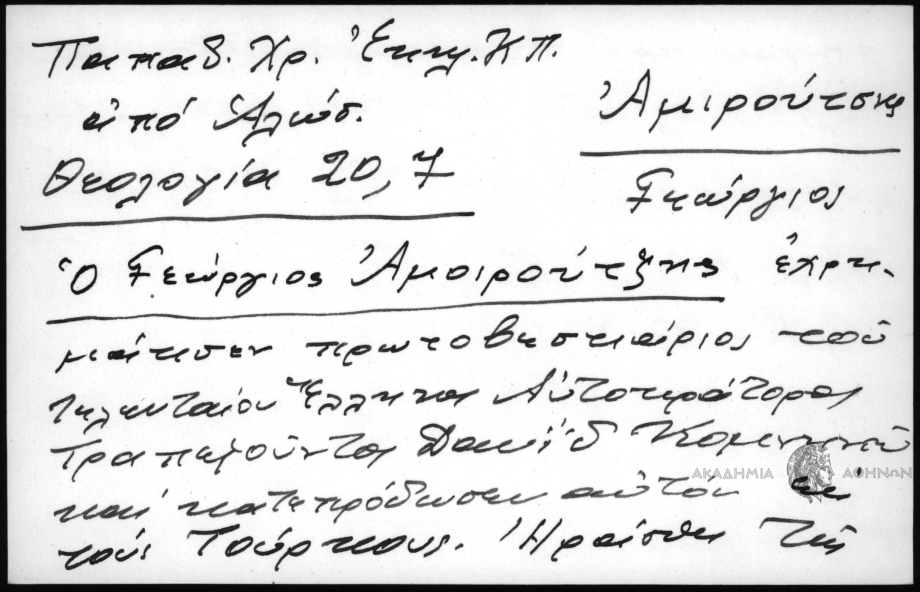 Παπαδ. Χρ. Ἐκκλ. ΚΠ.
ἀπό Ἁλώσ.
Θεολογία 20, 7
Ἀμιρούτσης
Γεώργιος
Ὁ Γεώργιος Ἀμοιρούτζης ἐχρη-
μάτισεν πρωτοβεστιάριος τοῦ
τελευταίου Ἕλληνος Αὐτοκράτορος
Τραπεζοῦντος Δαυΐδ Κομνηνοῦ
καί κατεπρόδωσεν αὐτόν εἰς
τούς Τούρκους. Ἠράσθη τῆς
ΑΚΑΔΗΜΙΑ ΑΘΗΝΩΝ